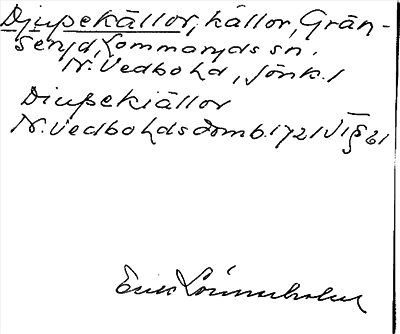 Djupekällor, källor, Grän-
Senjd, Lommaryds sn.
N. Vedbo hd, Jönk. l
Diupekiällor
N. Vedbo hds domb. 1721 VT § 61
Erik Lönnerholm